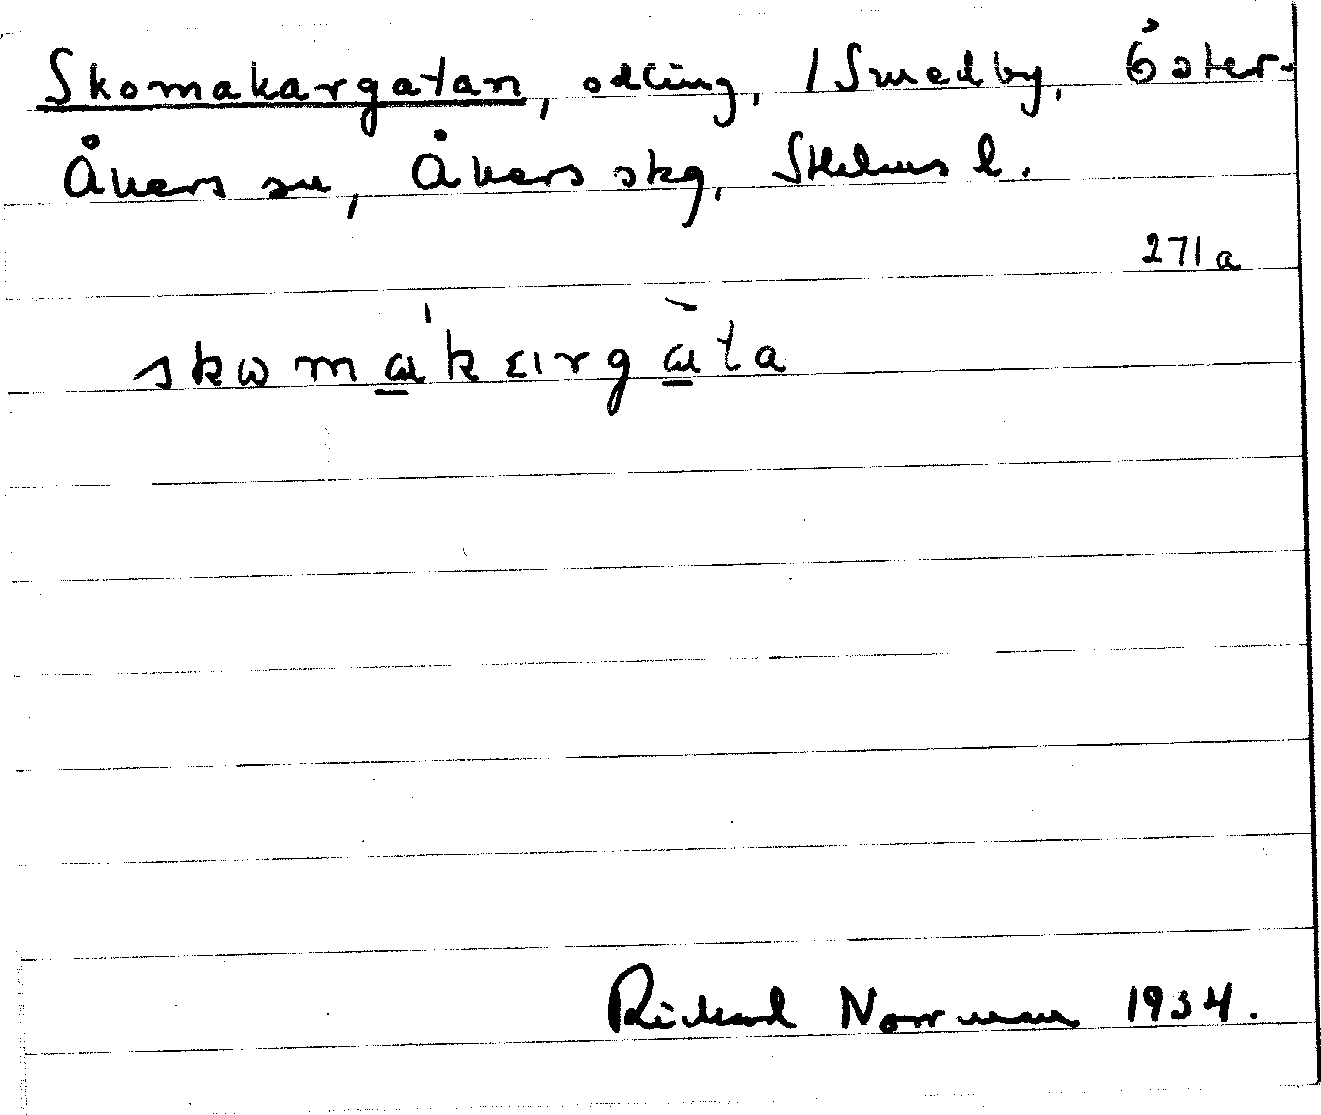 Skomakargatan, odling, /Smedby, Öster-
Åkers sn, Åkers skg, Sthlms l.
271a
skωmα̲'kɛrgὰ̲ta
Rickard Norrman 1934.